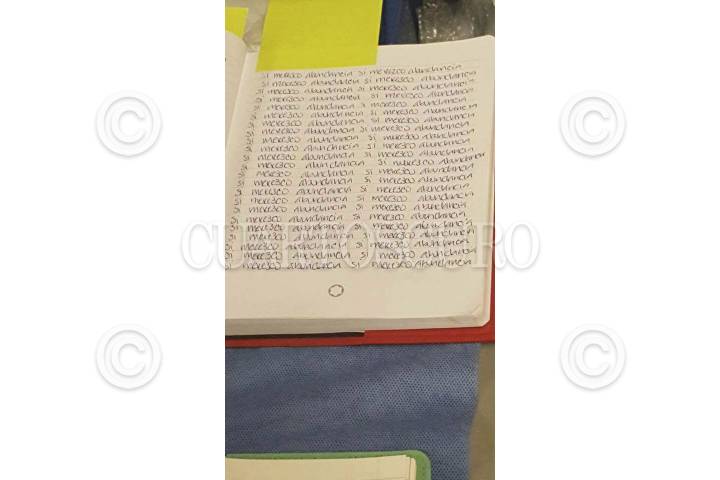 si merezco abundancia si merezco abundancia
si merezco abundancia si merezco abundancia
si merezco abundancia si merezco abundancia
si merezco abundancia si merezco abundancia
si merezco abundancia si merezco abundancia
si merezco abundancia si merezco abundancia
si merezco abundancia si merezco abundancia
si merezco abundancia si merezco abundancia
si merezco abundancia si merezco abundancia
si merezco abundancia si merezco abundancia
si merezco abundancia si merezco abundancia
si merezco abundancia si merezco abundancia
si merezco abundancia si merezco abundancia
si merezco abundancia si merezco abundancia
si merezco abundancia si merezco abundancia
si merezco abundancia si merezco abundancia
si merezco abundancia si merezco abundancia
si merezco abundancia si merezco abundancia
si merezco abundancia si merezco abundancia
si merezco abundancia si merezco abundancia
si merezco abundancia si merezco abundancia
si merezco abundancia si merezco abundancia
si merezco abundancia si merezco abundancia
CUARTOSCURO